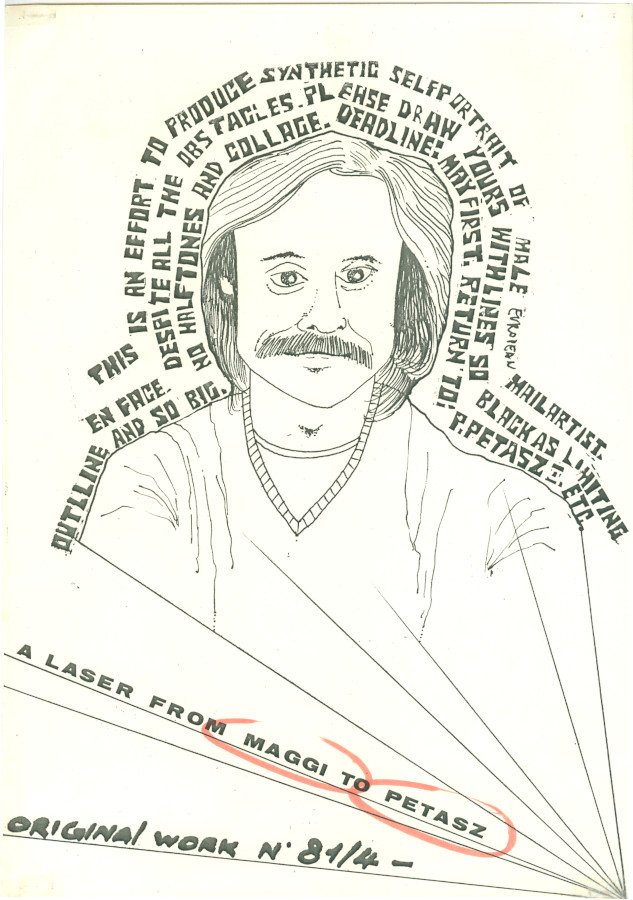 THIS IS AN EFFORT TO PRODUCE SYNTHETIC SELFPORTRAIT OF MALE EUROPEAN MAILARTIST.
EN FACE. DESPITE ALL THE OBSTACLES. PLEASE DRAW YOURS WITH LINES SO BLACK AS LIMITING
OUTLLINE AND SO BIG. NO HALFTONES AND COLLAGE. DEADLINE: MAY FIRST. RETURN TO: P.PETASZ ETC.
A LASER FROM MAGGI TO PETASZ
ORIGINAL WORK N° 81/4 —